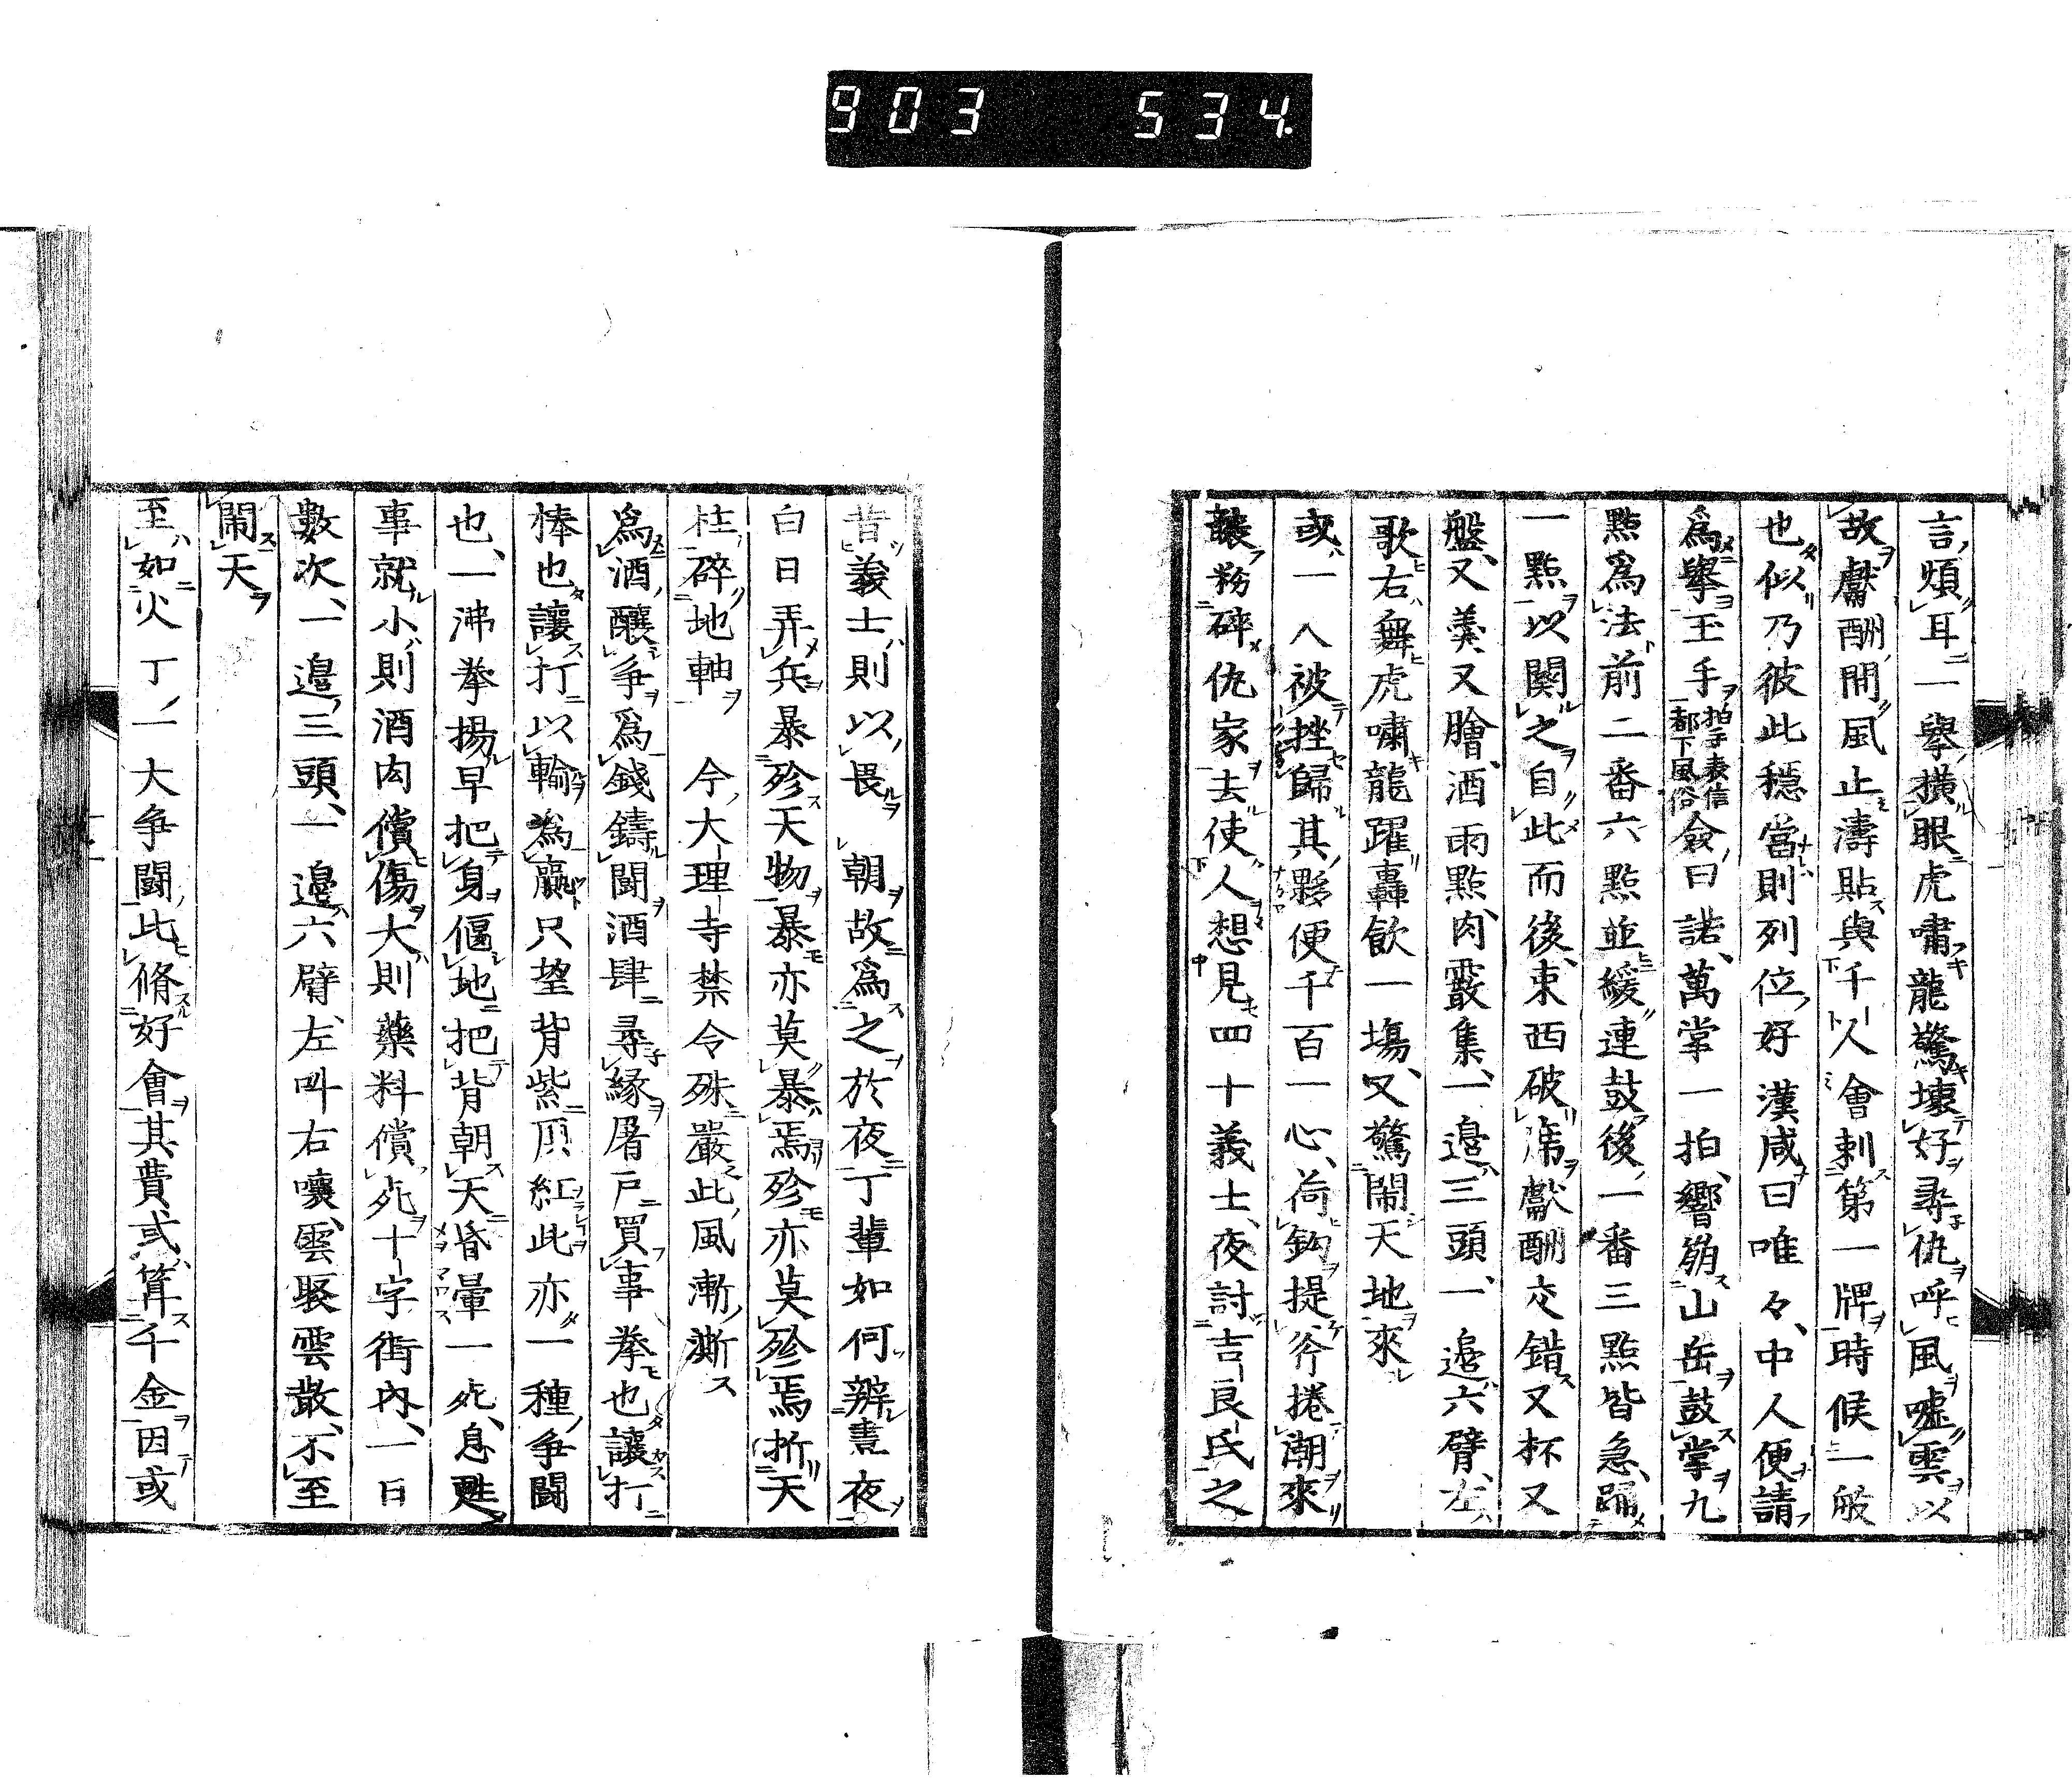 903 534.
言煩耳一擧橫眼虎嘯龍驚壞好尋仇呼風噓雲以
故獻酬閙風止濤貼與千人會剌第一牌時候一般
也似乃彼此穩當則列位好漢咸曰唯々中人便請
爲擧玉手拍手表信都下風俗僉曰諾萬掌一拍響崩山岳鼓掌九
點爲法前二番六點並緩連鼓後一番三點皆急踊
一點以闋之自此而後東西破席獻酬交錯又杯又
盤又羹又膾酒雨點肉霰集一邉三頭一邉六臂左
歌右舞虎嘯龍躍轟飮一塲又驚閙天地來
或一人被挫歸其夥便千百一心荷鈎提斧捲潮來
粉碎仇家去使人想見四十義士夜討吉良氏之
昔義士則以畏 朝故爲之於夜丁輩如何辨晝夜
白日弄兵暴殄天物暴亦莫暴焉殄亦莫殄焉折天
柱碎地軸 今大理寺禁令殊嚴此風漸澌
爲酒釀爭爲錢鑄闘酒肆尋緣屠戸買事拳也讓打
棒也讓打以輸爲贏只望背紫頂紅此亦一種爭闘
也一沸拳揚早把身偃地把背朝天昏暈一死息甦
事就小則酒肉償傷大則藥料償死十字街內一日
數次一邉三頭一邉六臂左叫右嚷雲聚雲散不至
閙天
至如火丁一大爭闘此脩好會其費或算千金因或